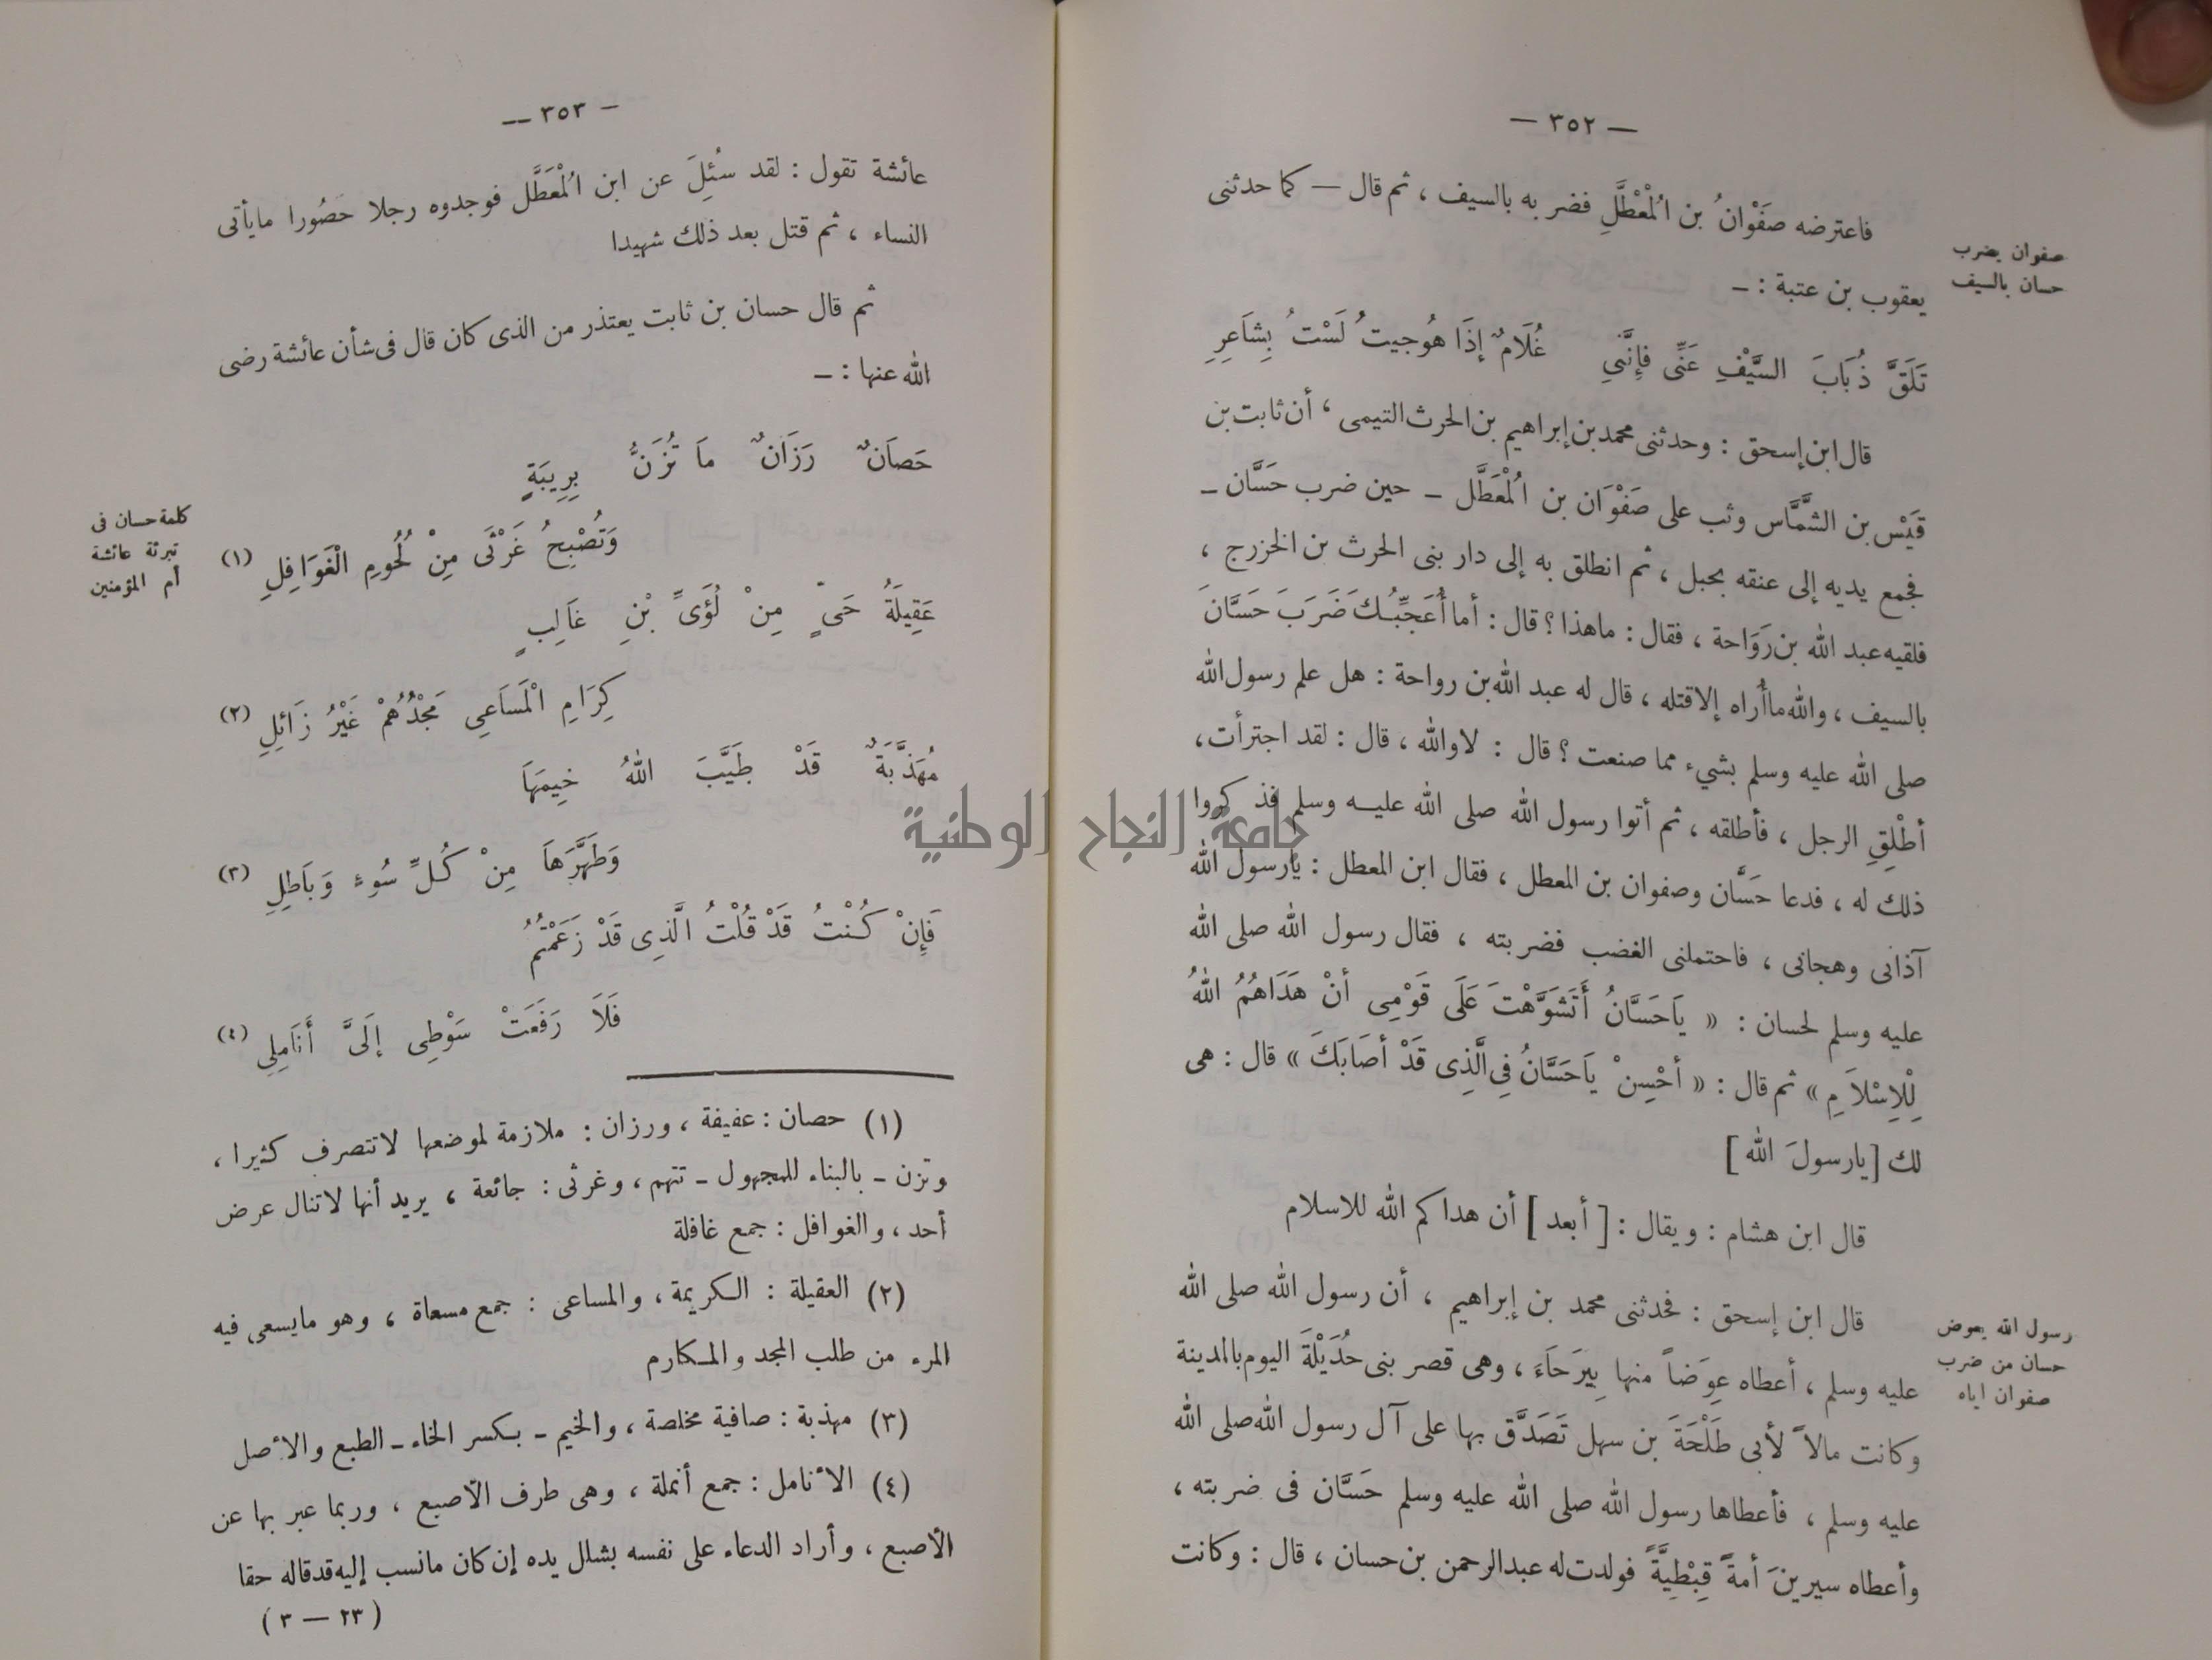 — ٣٥٢ —
فاعترضه صَفْوَانُ بن الْمُعَطَّلِ فضربه بالسيف ، ثم قال — كما حدثنى
صفوان يضرب
حسان بالسيف
يعقوب بن عتبة : —
تَلَقَّ ذُبَابَ السَّيْفِ عَنِّى فَإِنَّنِى غُلَامٌ إِذَا هُوجِيتُ لَسْتُ بِشَاعِرِ
قال ابن إسحق : وحدثنى محمد بن إبراهيم بن الحرث التيمى ، أن ثابت بن
قَيْس بن الشَّمَّاس وثب على صَفْوَان بن الْمُعَطَّل — حين ضرب حَسَّان —
فجمع يديه إلى عنقه بحبل ، ثم انطلق به إلى دار بنى الحرث بن الخزرج ،
فلقيه عبد الله بن رَوَاحة ، فقال : ماهذا ؟ قال : أما أُعَجِّبُكَ ضَرَبَ حَسَّانَ
بالسيف ، والله ماأُراه إلا قتله ، قال له عبد الله بن رواحة : هل علم رسول الله
صلى الله عليه وسلم بشيء مما صنعت ؟ قال : لا والله ، قال : لقد اجترأت ،
أطْلِقِ الرجل ، فأطلقه ، ثم أتوا رسول الله صلى الله عليه وسلم فذكروا
ذلك له ، فدعا حَسَّان وصفوان بن المعطل ، فقال ابن المعطل : يارسول الله
آذانى وهجانى ، فاحتملنى الغضب فضربته ، فقال رسول الله صلى الله
عليه وسلم لحسان : « يَاحَسَّانُ أَتَشَوَّهْتَ عَلَى قَوْمِى أنْ هَدَاهُمُ اللهُ
لِلْإِسْلَامِ » ثم قال : « أحْسِنْ يَاحَسَّانُ فِى الَّذِى قَدْ أصَابَكَ » قال : هى
لك [ يارسولَ الله ]
قال ابن هشام : ويقال : [ أبعد ] أن هداكم الله للاسلام
قال ابن إسحق : فحدثنى محمد بن إبراهيم ، أن رسول الله صلى الله
رسول الله يعوض
حسان من ضرب
صفوان اياه
عليه وسلم ، أعطاه عِوَضاً منها بِيرَحَاءَ ، وهى قصر بنى حُدَيْلَةَ اليوم بالمدينة
وكانت مالاً لأبى طَلْحَةَ بن سهل تَصَدَّقَ بها على آل رسول الله صلى الله
عليه وسلم ، فأعطاها رسول الله صلى الله عليه وسلم حَسَّان فى ضربته ،
وأعطاه سيرينَ أمةً قِبْطِيَّةً فولدت له عبد الرحمن بن حسان ، قال : وكانت
— ٣٥٣ —
عائشة تقول : لقد سُئِلَ عن ابن الْمُعَطَّل فوجدوه رجلا حَصُورا مايأتى
النساء ، ثم قتل بعد ذلك شهيدا
ثم قال حسان بن ثابت يعتذر من الذى كان قال فى شأن عائشة رضى
الله عنها : —
حَصَانٌ رَزَانٌ مَا تُزَنُّ بِرِيبَةٍ
وَتُصْبِحُ غَرْثَى مِنْ لُحُومِ الْغَوَافِلِ (١)
كلمة حسان فى
تبرئة عائشة
أم المؤمنين
عَقِيلَةُ حَىٍّ مِنْ لُؤَىِّ بْنِ غَالِبٍ
كِرَامِ الْمَسَاعِى مَجْدُهُمْ غَيْرُ زَائِلِ (٢)
مُهَذَّبَةٌ قَدْ طَيَّبَ اللهُ خِيمَهَا
وَطَهَّرَهَا مِنْ كُلِّ سُوءٍ وَبَاطِلِ (٣)
فَإِنْ كُنْتُ قَدْ قُلْتُ الَّذِى قَدْ زَعَمْتُمُ
فَلَا رَفَعَتْ سَوْطِى إِلَىَّ أَنَامِلِى (٤)
(١) حصان : عفيفة ، ورزان : ملازمة لموضعها لاتتصرف كثيرا ،
وتزن — بالبناء للمجهول — تتهم ، وغرثى : جائعة ، يريد أنها لاتنال عرض
أحد ، والغوافل : جمع غافلة
(٢) العقيلة : الكريمة ، والمساعى : جمع مسعاة ، وهو مايسعى فيه
المرء من طلب المجد والمكارم
(٣) مهذبة : صافية مخلصة ، والخيم — بكسر الخاء — الطبع والأصل
(٤) الأنامل : جمع أنملة ، وهى طرف الأصبع ، وربما عبر بها عن
الأصبع ، وأراد الدعاء على نفسه بشلل يده إن كان مانسب إليه قد قاله حقا
( ٢٣ — ٣ )
جامعة النجاح الوطنية